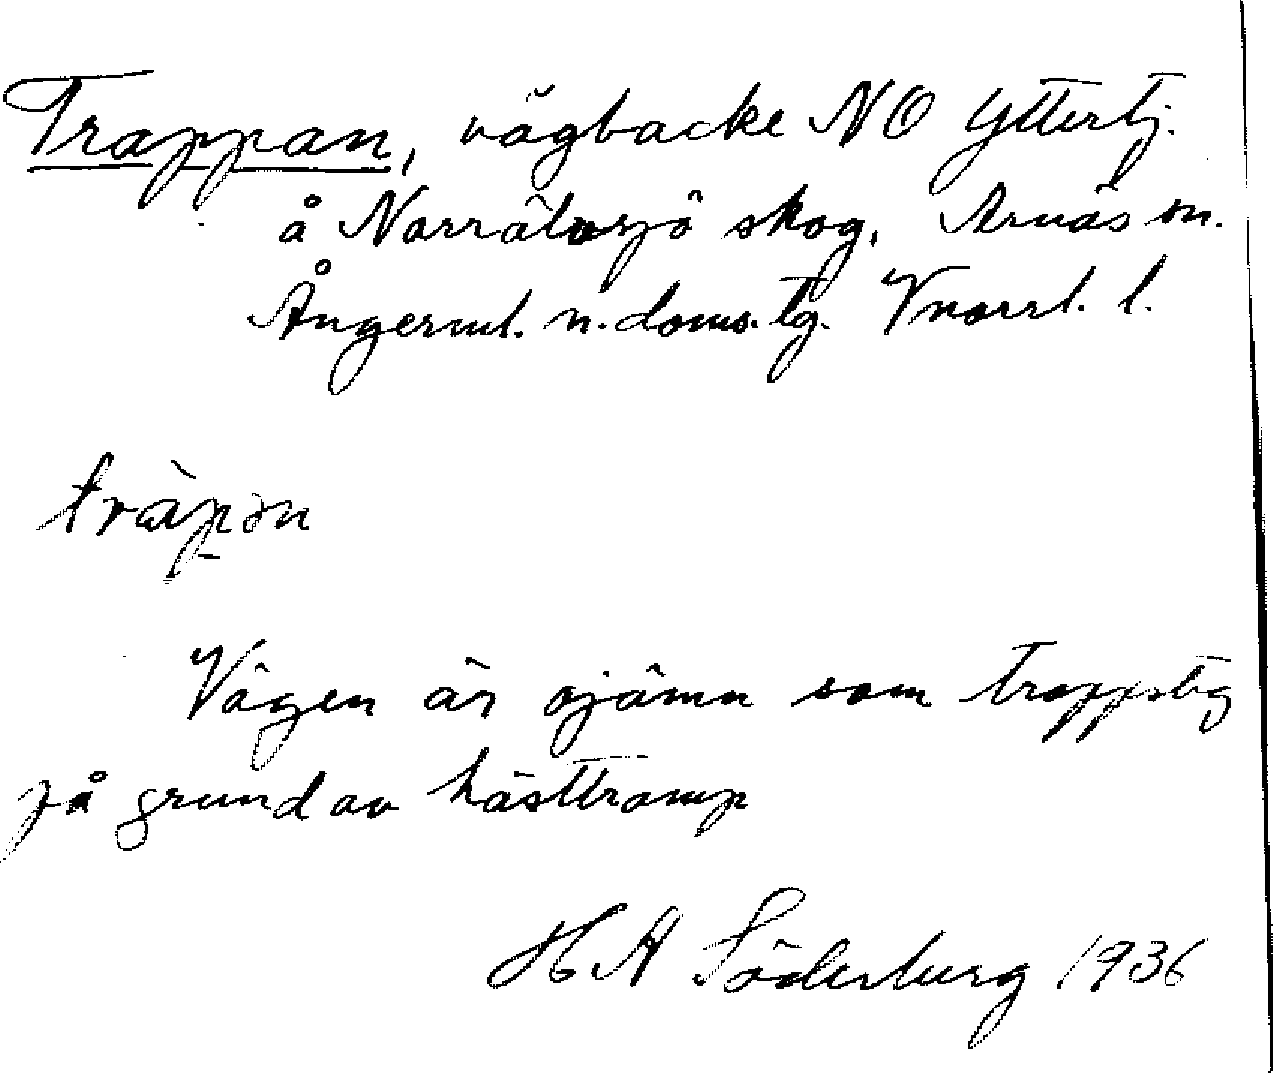 Trappan, vägbacke NO Yttertj.
å Norrätersjö skog, Arnäs sn.
Ångerml. n. doms. tg. Vnorrl. l.
tràpən
Vägen är ojämn som trappsteg
på grund av hästtramp
H A Söderberg 1936